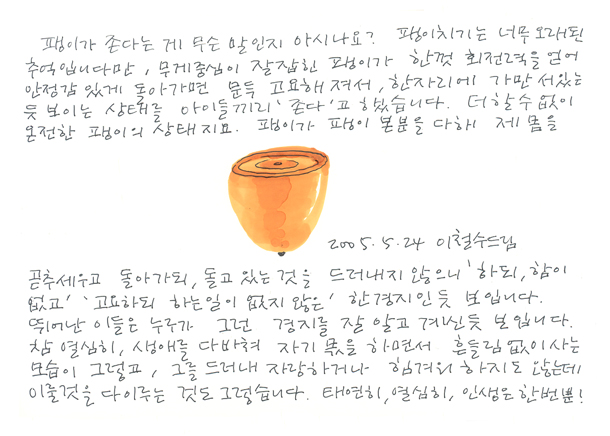 팽이가 존다는 게 무슨 말인지 아시나요? 팽이치기는 너무 오래된
추억입니다만, 무게중심이 잘잡힌 팽이가 한껏 회전력을 얻어
안정감 있게 돌아가면 문득 고요해져서, 한자리에 가만 서있는
듯 보이는 상태를 아이들끼리 '존다'고 하였습니다. 더할 수 없이
온전한 팽이의 상태지요. 팽이가 팽이 본분을 다해 제 몸을
2005.5.24 이철수드림
곧추세우고 돌아가되, 돌고 있는 것을 드러내지 않으니 '하되, 함이
없고' '고요하되 하는일이 없지 않은' 한경지인 듯 보입니다.
뛰어난 이들은 누구나 그런 경지를 잘 알고 계신듯 보입니다.
참 열심히, 생애를 다바쳐 자기 몫을 하면서 흔들림 없이 사는
모습이 그렇고, 그를 드러내 자랑하거나 힘겨워 하지도 않는데
이룰것을 다 이루는 것도 그렇습니다. 태연히, 열심히, 인생은 한번뿐!